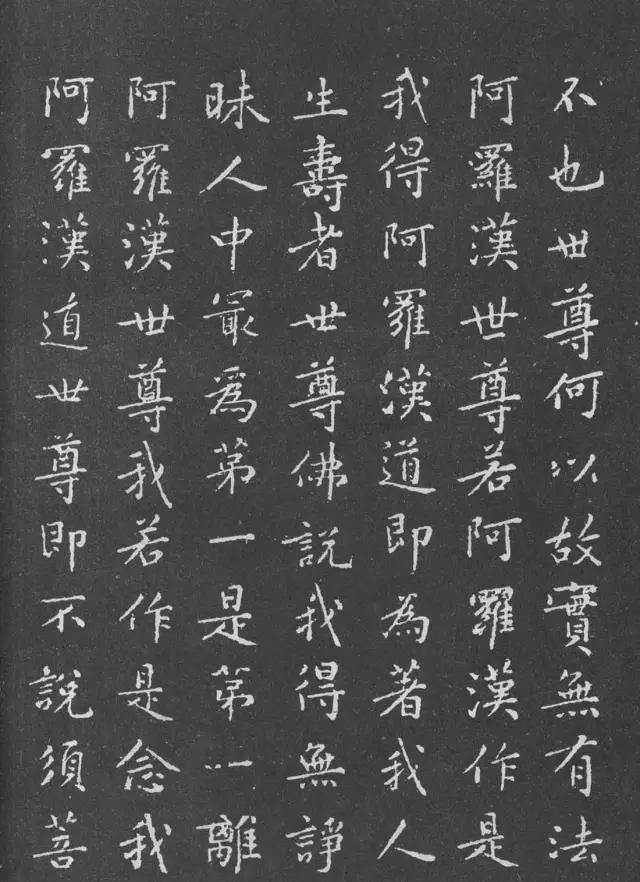 不也世尊何以故實無有法
阿羅漢世尊若阿羅漢作是
我得阿羅漢道即為著我人
生壽者世尊佛說我得無諍
昧人中最為第一是第一離
阿羅漢世尊我若作是念我
阿羅漢道世尊即不說須菩